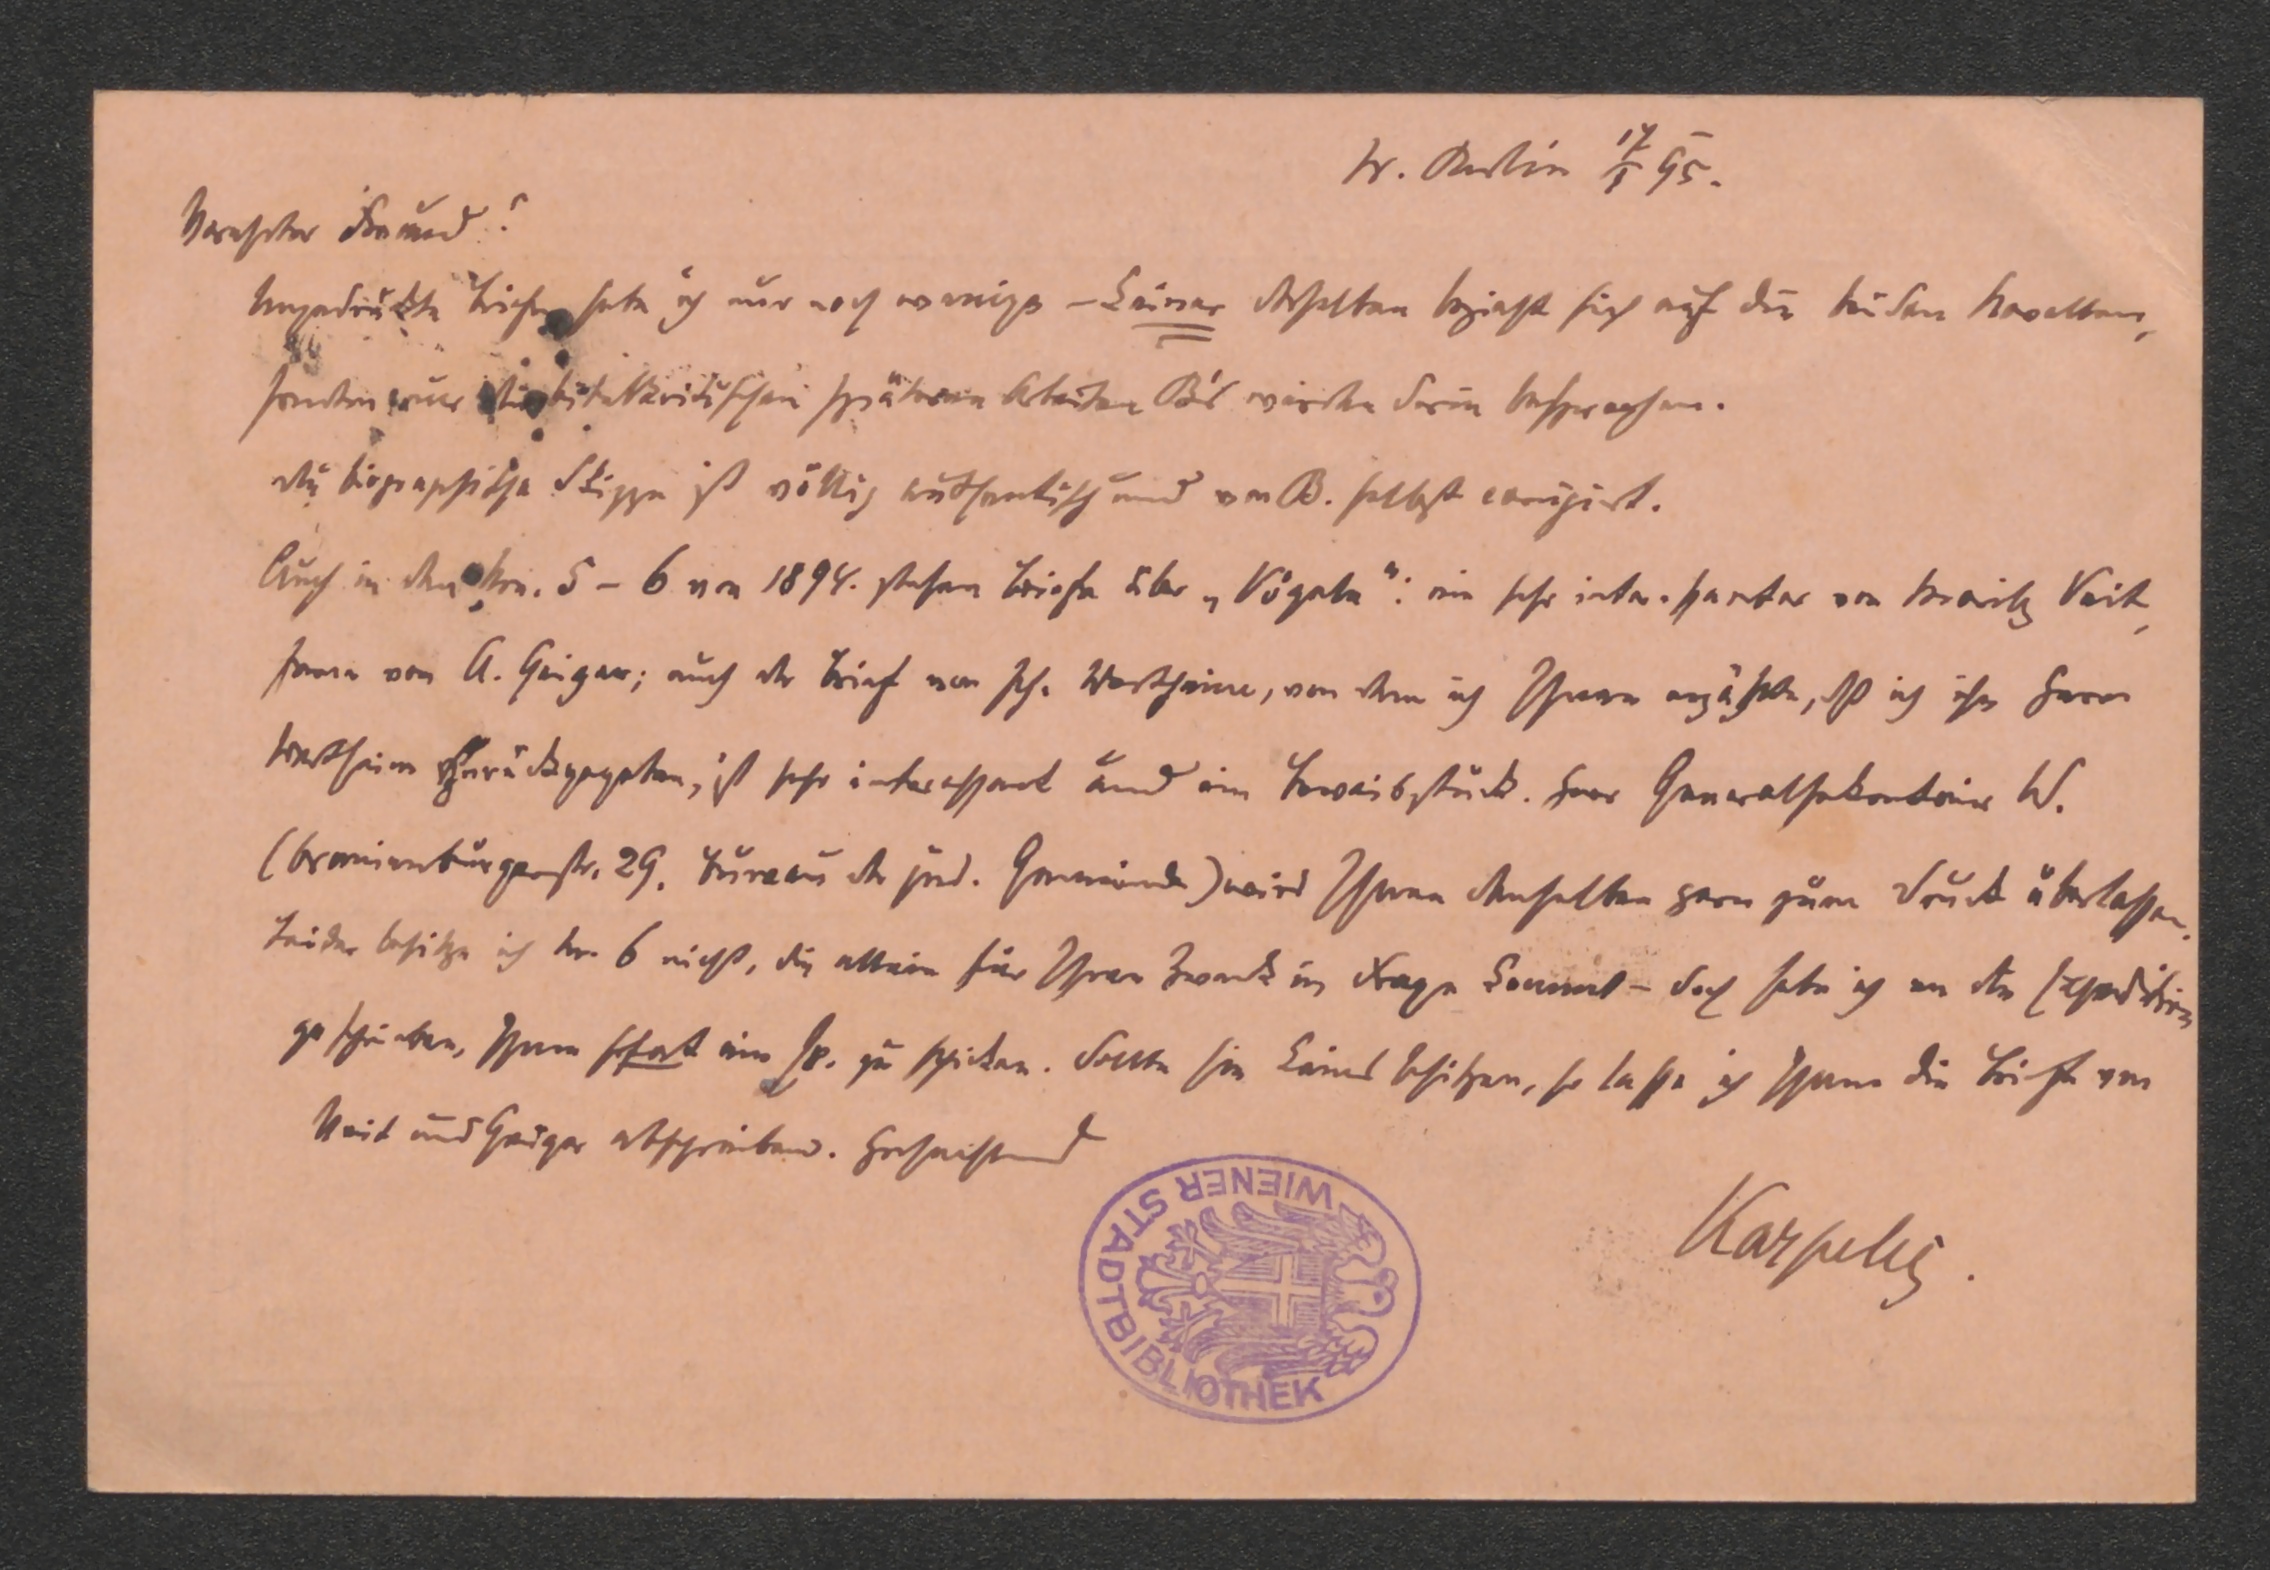 W. Berlin 17/I 95.
Verehrter Freund!
Ungedruckte Briefe habe ich nur noch wenige – keiner derselben bezieht sich auf die beiden Novellen,
sondern nur die bibelkritischen späteren Arbeiten B's werden darin besprochen.
Die biographische Skizze ist völlig authentisch und von B. selbst corrigirt.
Auch in den Nrn. 5 – 6 von 1894. stehen Briefe über „Vögele“: ein sehr interessanter von Moritz Veit,
ferner von A. Geiger; auch der Brief von Wertheim, von dem ich Ihnen erzählte, dß ich ihn Herrn
Wertheim zurückgegeben, ist sehr interessant und ein Beweisstück. Herr Generalsekretair W.
(Oranienburgerstr. 29. Bureau der jüd. Gemeinde) wird Ihnen denselben gern zum Druck überlassen.
Leider besitze ich Nr. 6 nicht, die allein für Ihren Zweck in Frage kommt – doch habe ich an die Expedition
geschrieben, Ihnen sofort ein Ex. zu schicken. Sollte sie keines besitzen, so lasse ich Ihnen die Briefe von
Veit und Geiger abschreiben. Hochachtend
Karpeles.
WIENER STADTBIBLIOTHEK